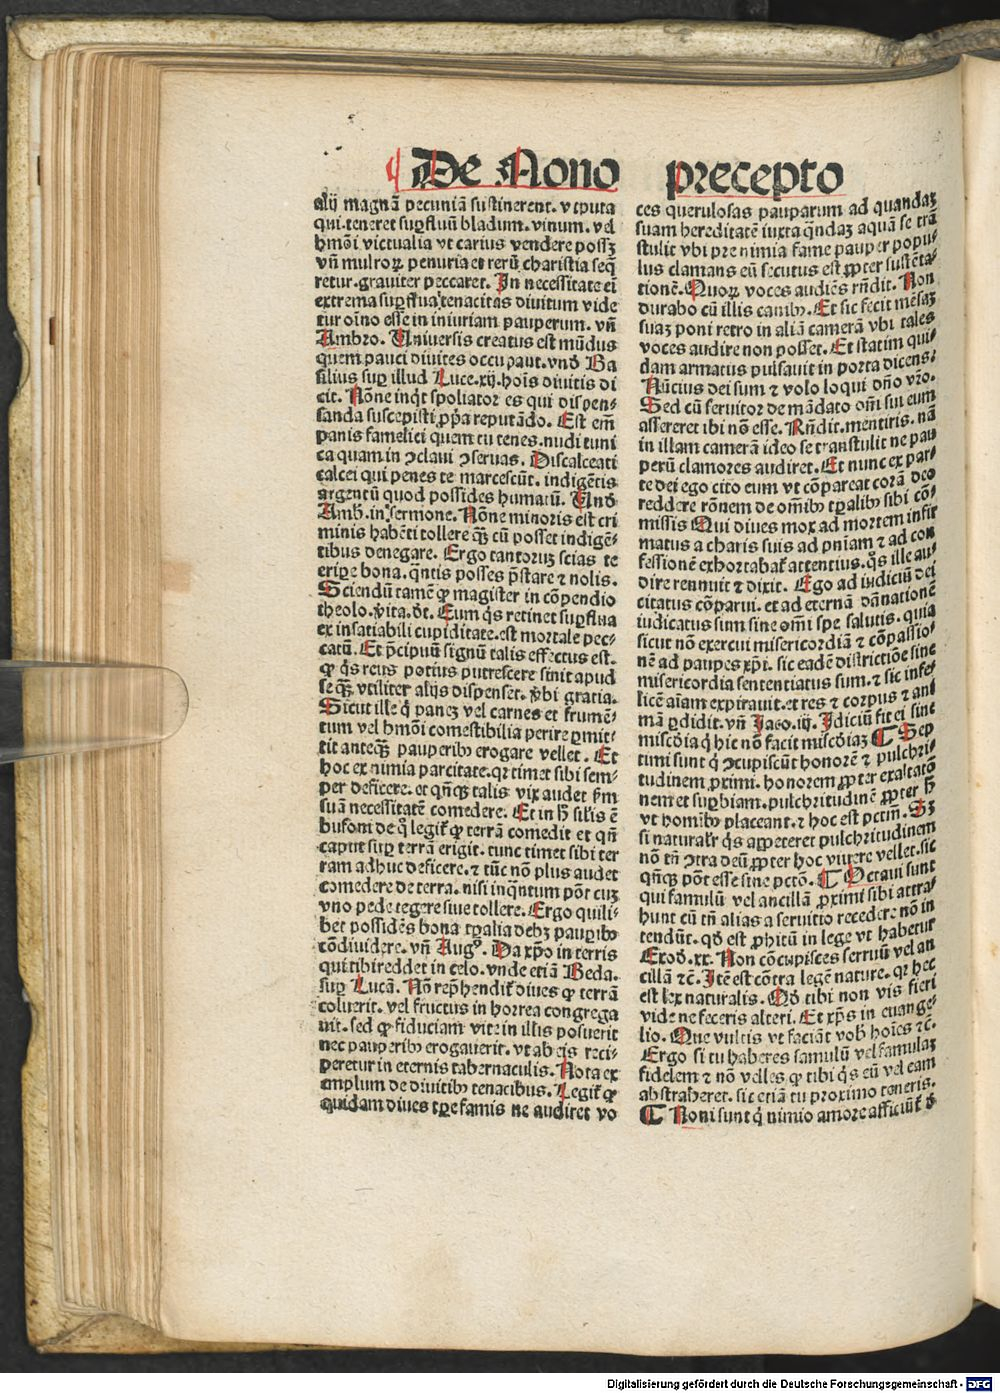 De Nono precepto
alij magnā pecuniā sustinerent. vtputa
qui teneret suꝑfluū bladum. vinum. vel
hmōi victualia vt carius vendere possꝫ
vñ multoꝝ penuria et rerū charistia seq̄
retur. grauiter peccaret. In necessitate eī
extrema suꝑflua tenacitas diuitum vide
tur oīno esse in iniuriam pauperum. vñ
Ambro. Uniuersis creatus est mūdus
quem pauci diuites occupaut. vnð Ba
silius suꝑ illud Luce. xij. hoīs diuitis di
cit. Nōne inqͥt spoliator es qui dispen-
sanda suscepisti ꝓpͥa reputādo. Est em̄
panis famelici quem tu tenes. nudi tuni
ca quam in ↄclaui ↄseruas. Discalceati
calcei qui penes te marcescūt. indigētis
argentū quod possides humatū. Unð
Amb. in sermone. Nōne minoris est cri
minis habēti tollere qꝫ cū posset indigē-
tibus denegare. Ergo tantoruꝫ scias te
eripe bona. qͣntis posses p̄stare ⁊ nolis.
Sciendū tamē ꝙ magister in cōpendio
theolo. ꝟita. ðt. Eum qͥs retinet suꝑflua
ex insatiabili cupiditate. est mortale pec-
catū. Et p̄cipuū signū talis effectus est.
ꝙ qͥs reus potius putrescere sinit apud
se qꝫ vtiliter alijs dispenset. ꝟbi gratia.
Sicut ille qͥ paneꝫ vel carnes et frumē-
tum vel hmōi comestibilia perire ꝑmit-
tit anteqꝫ pauperibꝰ erogare vellet. Et
hoc ex nimia parcitate. qꝛ timet sibi sem-
per deficere. et qn̄qꝫ talis vix audet ꝑm
suā necessitatē comedere. Et in h̄ silis ē
bufoni de qͦ legit̄ ꝙ terrā comedit et qn̄
caput suꝑ terrā erigit. tunc timet sibi ter
ram adhuc deficere. ⁊ tūc nō plus audet
comedere de terra. nisi inqͣntum pōt cuꝫ
vno pede tegere siue tollere. Ergo quili-
bet possidēs bona tꝑalia debꝫ pauꝑibꝰ
cōdiuidere. vñ Augꝰ. Da xp̄o in terris
qui tibi reddet in celo. vnde etiā Beda.
suꝑ Lucā. Nō rep̄hendit̄ diues ꝙ terrā
coluerit. vel fructus in horrea congrega
uit. sed ꝙ fiduciam vite in illis posuerit
nec pauperibꝰ erogauerit. vt ab eis reci-
peretur in eternis tabernaculis. Nota ex
emplum de diuitibꝰ tenacibus. Legit̄ ꝙ
quidam diues tꝑe famis ne audiret vo
ces querulosas pauparum ad quandaꝫ
suam hereditatē iuxta qͣndaꝫ aquā se trā
stulit vbi pre nimia fame pauper popu-
lus clamans eū secutus est ꝓpter sustēta-
tionē. Quoꝝ voces audiēs rn̄dit. Non
durabo cū illis canibꝰ. Et sic fecit mēsaꝫ
suaꝫ poni retro in aliā camerā vbi tales
voces audire non posset. Et statim qui-
dam armatus pulsauit in porta dicens.
Nūcius dei sum ⁊ volo loqui dn̄o vr̄o.
Sed cū seruitor de mādato dn̄i sui eum
assereret ibi nō esse. Rn̄dit. mentiris. nā
in illam camerā ideo se transtulit ne pau
perū clamores audiret. Et nunc ex par-
te dei ego cito eum vt cōpareat corā deo
reddere rōnem de om̄ibꝰ tꝑalibꝰ sibi cō-
missis Qui diues mox ad mortem infir
matus a charis suis ad pn̄iam ⁊ ad con
fessionē exhortabat̄ attentius. qͥs ille au-
dire rennuit ⁊ dixit. Ego ad iudiciū dei
citatus cōparui. et ad eternā dānationē
iudicatus sum sine om̄i spe salutis. quia
sicut nō exercui misericordiā ⁊ cōpassio-
nē ad paupes xp̄i. sic eadē districtiōe sine
misericordia sententiatus sum. ⁊ sic infe-
licē aīam expirauit. et res ⁊ corpus ⁊ ani
mā ꝑdidit. vñ Jaco. iij. Judiciū fit ei sine
miscd̄ia qͥ hic nō facit miscd̄iaꝫ ¶ Sep
timi sunt qͥ ↄcupiscūt honorē ⁊ pulchri-
tudinem ꝓximi. honorem ꝓpter exaltatō
nem et suꝑbiam. pulchritudinē ꝓpter h̄
vt homībꝰ placeant. ⁊ hoc est pctm̄. Sꝫ
si naturalr̄ qͥs appeteret pulchritudinem
nō tn̄ ↄtra deū ꝓpter hoc viuere vellet. sic
qn̄qꝫ pōt esse sine pctō. ¶ Octaui sunt
qui famulū vel ancillā ꝓximi sibi attra-
hunt cū tn̄ alias a seruitio recedere nō in
tendūt. qð est ꝓhitū in lege vt habetur
Exod. xx. Non cōcupisces seruū vel an
cillā ⁊c̄. Itē est cōtra legē nature. qꝛ hec
est lex naturalis. Qð tibi non vis fieri
vide ne feceris alteri. Et xp̄s in euange-
lio. Que vultis vt faciāt vob̄ hoīes ⁊c̄.
Ergo si tu haberes famulū vel famulaꝫ
fidelem ⁊ nō velles ꝙ tibi qͥs eū vel eam
abstraheret. sic etiā tu proximo teneris.
¶ Noni sunt qͥ nimio amore afficiūt̄ ð
Digitalisierung gefördert durch die Deutsche Forschungsgemeinschaft - DFG